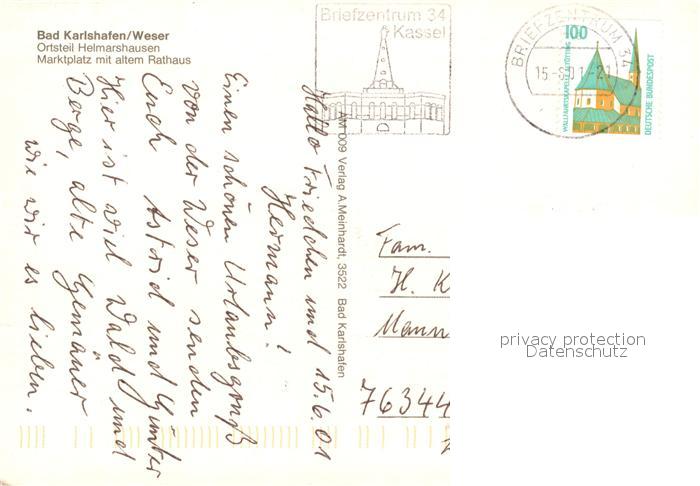 Bad Karlshafen/Weser
Ortsteil Helmarshausen
Marktplatz mit altem Rathaus
Briefzentrum 34
Kassel
BRIEFZENTRUM 34
15.-6.01-21
100
WALLFAHRTSKAPELLE ALTÖTTING
DEUTSCHE BUNDESPOST
AM 009 Verlag A.Meinhardt, 3522 Bad Karlshafen
15.6.01
Hallo Friedchen und
Hermann!
Einen schönen Urlaubsgruß
von der Weser senden
Euch Astrid und Günter
Hier ist viel Wald und
Berge, alte Gemäuer
wie wir es lieben.
Fam.
H. K
Mann
76344
privacy protection
Datenschutz